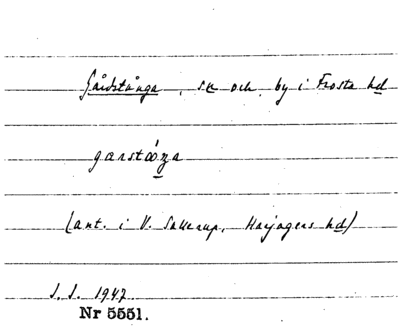 Gårdstånga, sn och by i Frosta hd
garståŋa
(ant. i V. Sallerup, Harjagers hd)
S. S. 1947
Nr 5551.